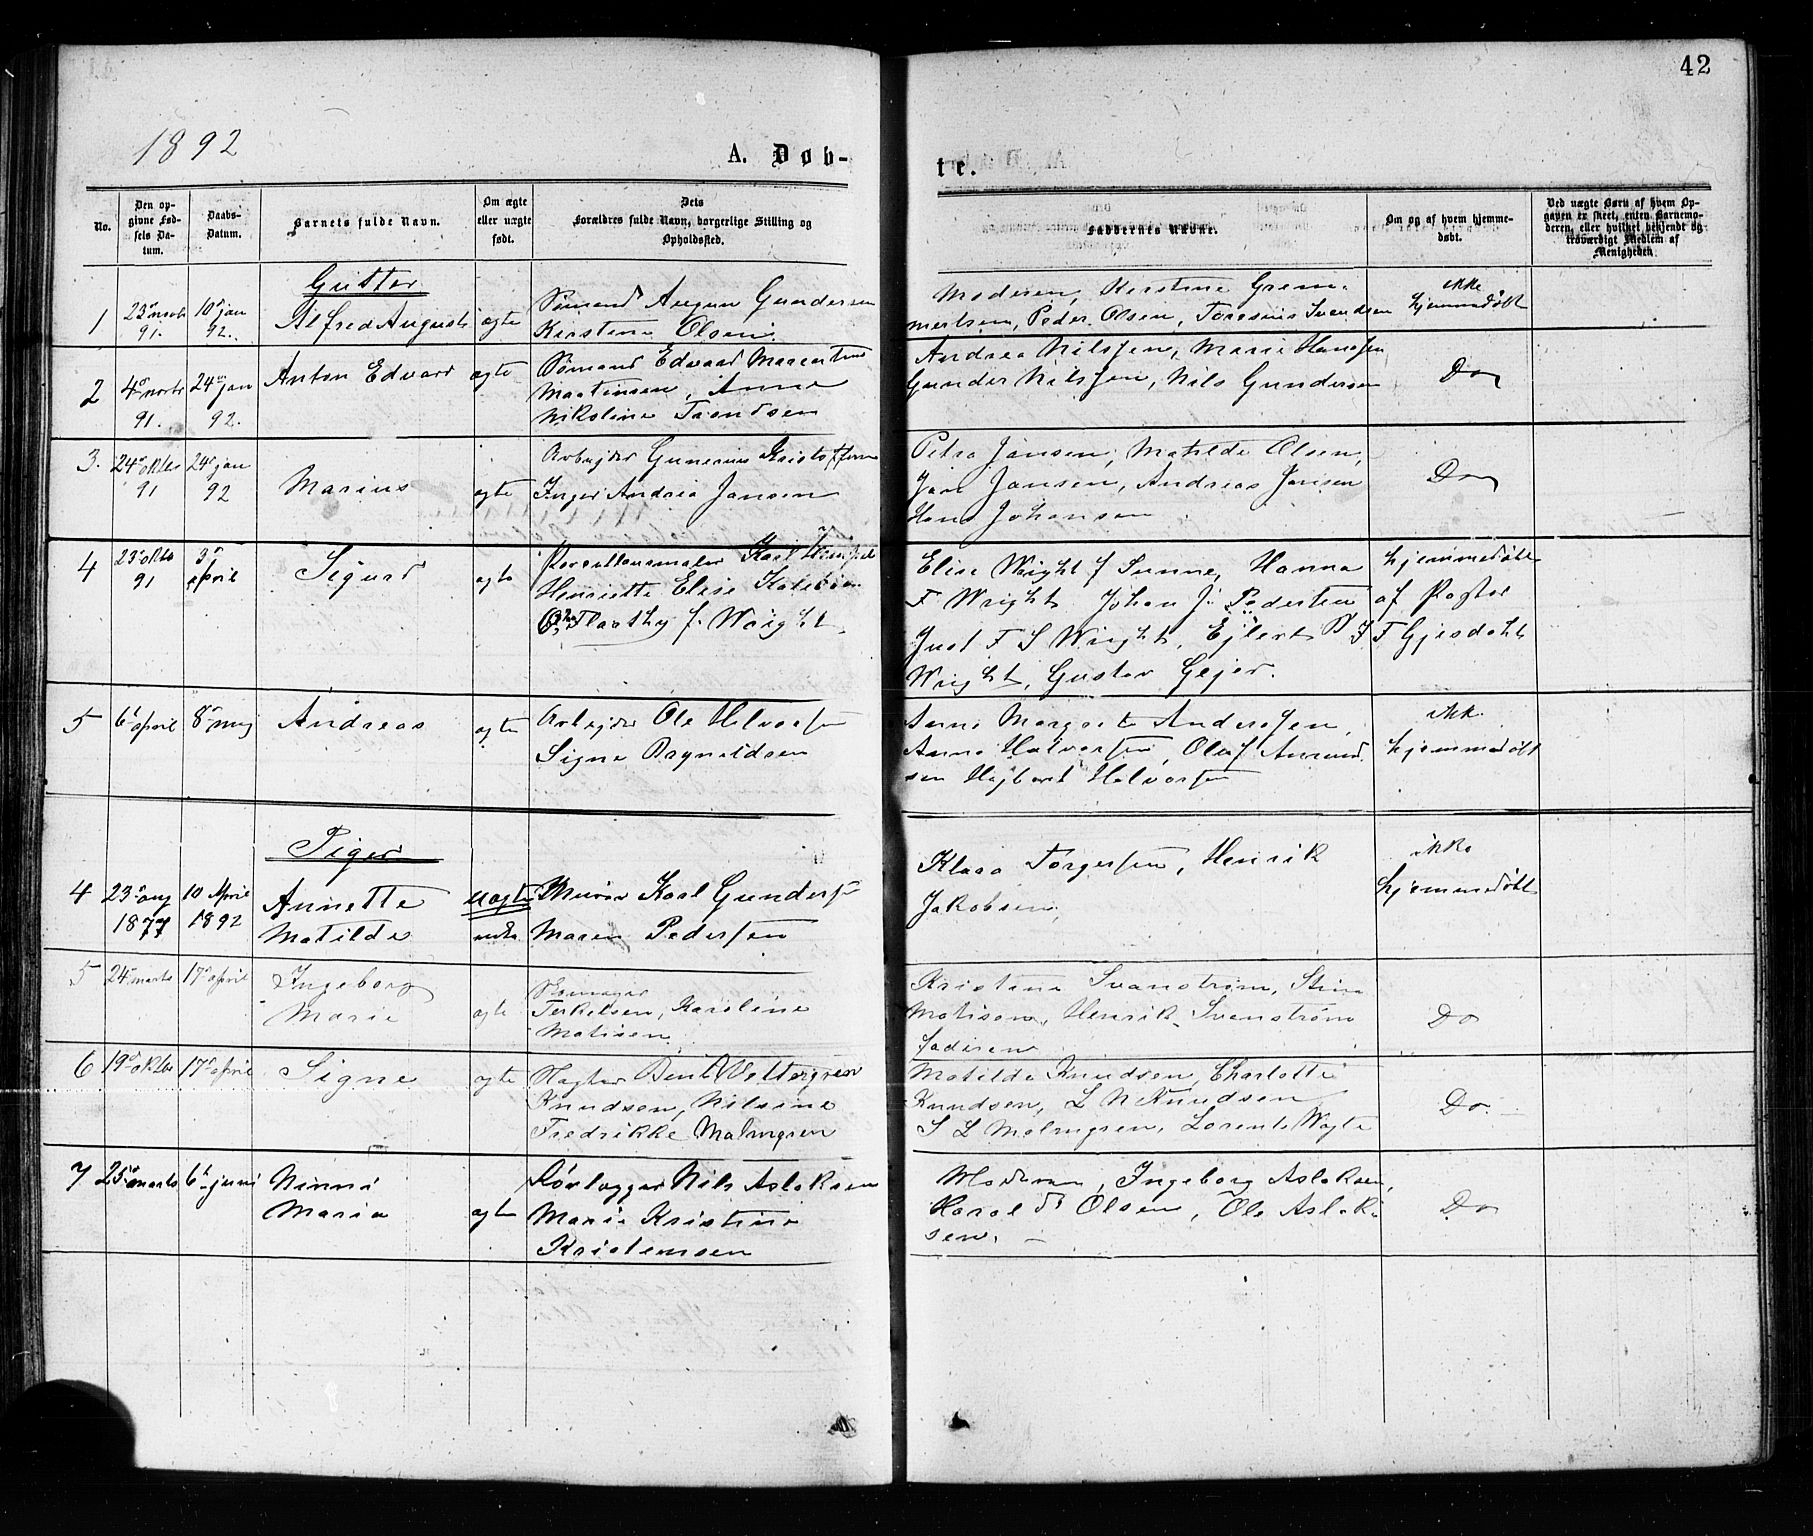 42
1892
A. Døb-
te.
No.
Den op-
givne Fød-
sels Da-
tum.
Daabs-
Datum.
Barnets fulde Navn.
Om ægte
eller uægte
født.
Dets
Forældres fulde Navn, borgerlige Stilling og
Opholdssted.
Faddernes Navne.
Om og af hvem hjemme-
døbt.
Ved uægte Børn af hvem Op-
gaven er skeet, enten Barnemo-
deren, eller hvilket bekjendt og
troværdigt Medlem af
Menigheden
Gutter
1 23 novb 91. 10 jan 92. Alfred August ægte
Sømand August Gundersen
Kirstine Olsen
Moderen, Kirstine Grem-
mertsen, Peder Olsen, Svendsen
ikke
hjemmedøbt
2 4 novbr 91. 24 jan 92. Anton Edvard ægte
Sømand Edvard
Martinsen, Anne
Nikoline
Andrea Nilssen, Marie Hanssen
Gunder Nilssen, Nils Gundersen
Do
3. 24 oktbr 91 24 jan 92 Marius ægte
Arbejder Gunerius
Inger Andrea Jansen
Petra Jansen, Matilde Olsen,
Jan Jansen, Andreas Jansen
Hans Johansen
Do
4 23 oktb 91 3 april Sigurd ægte
Karl
Henriette Elise
f. Wright
Elise Wright f Sunne, Hanna
F Wright Johan J. Pedersen
Just F S Wright, Ejlert
Wright, Gustav Gejer.
hjemmedøbt
af Pastor
F Gjesdahl
5 6 april 8 maj Andreas ægte
Arbejder Ole Halvorsen
Signe Reynoldsen
Anne Margrete Anderssen,
Anna Halvorsen, Oluf Amund
sen Halvorsen
ikke
hjemmedøbt
Piger
4 23 aug 1877 10 April 1892 Annette
Matilde
uægte
Murer Karl Gunders
Maren Pedersen
Klara Torgersen, Henrik
Jakobsen,
ikke
hjemmedøbt
5 24 marts 17 april Ingeborg
Marie ægte
Terkelsen, Karoline
Matisen
Kristine Svanstrøm, Stine
Matisen, Henrik Svenstrøm
faderen
Do
6 19 oktbr 17 april Signe ægte
Bent Vettergren
Knudsen, Nilsine
Fredrikke Malmgren
Matilda Knudsen, Charlotte
Knudsen, L N Knudsen
S L Malmgren, Lorents
Do.
7 25 marts 6 juni
Maria ægte
Rørlægger Nils Aslaksen
Marie Kristine
Kristensen
Moderen, Ingeborg Aslaksen,
Harald Olsen, Ole Aslak-
sen.
Do